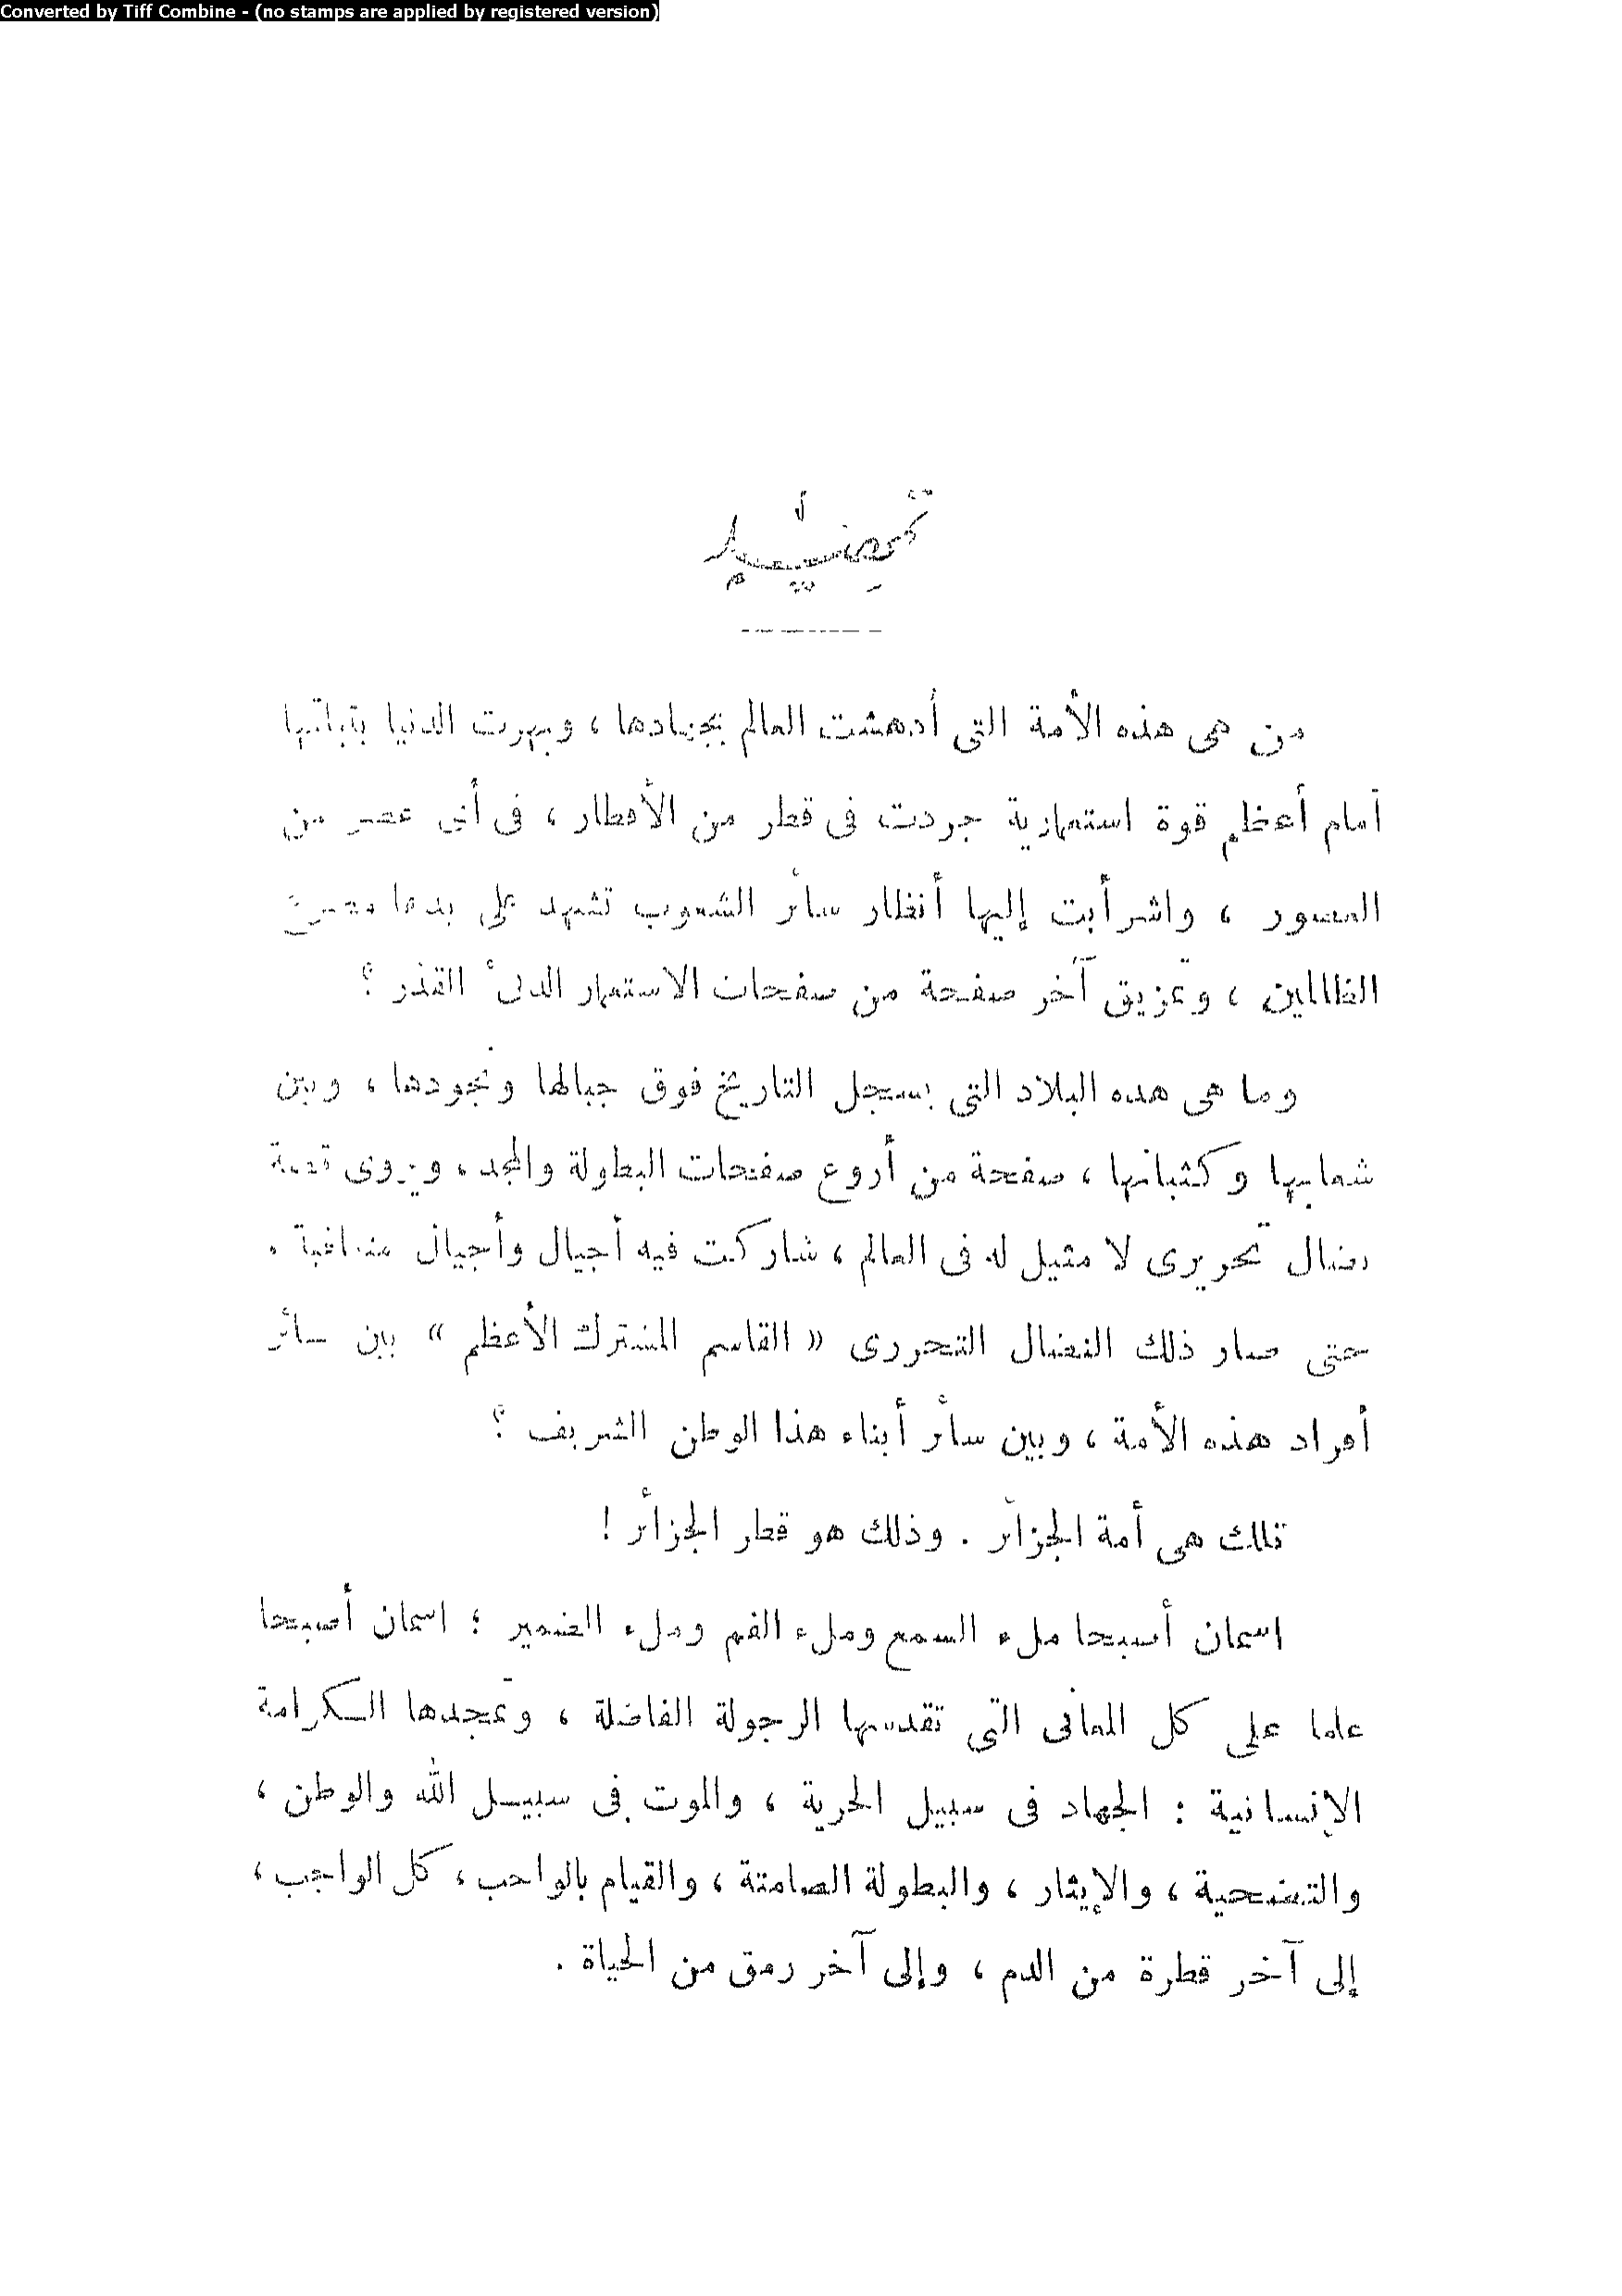 Converted by Tiff Combine - (no stamps are applied by registered version)
تمهيد
من هى هذه الأمة التى أدهشت العالم بجهادها ، وبهرت الدنيا بثباتها
أمام أعظم قوة استعمارية جردت فى قطر من الأقطار ، فى أى عصر من
العصور ، واشرأبت إليها أنظار سائر الشعوب تشهد على يدها مصرع
الظالمين ، وتمزيق آخر صفحة من صفحات الاستعمار الدنىء القذر ؟
وما هى هذه البلاد التى يسجل التاريخ فوق جبالها ونجودها ، وبين
شعابها وكثبانها ، صفحة من أروع صفحات البطولة والمجد ، ويروى قصة
نضال تحريرى لا مثيل له فى العالم ، شاركت فيه أجيال وأجيال متعاقبة ،
حتى صار ذلك النضال التحررى « القاسم المشترك الأعظم » بين سائر
أفراد هذه الأمة ، وبين سائر أبناء هذا الوطن الشريف ؟
تلك هى أمة الجزائر . وذلك هو قطر الجزائر !
اسمان أصبحا ملء السمع وملء الفم وملء الضمير ؛ اسمان أصبحا
علما على كل المعانى التى تقدسها الرجولة الفاضلة ، وتمجدها الكرامة
الإنسانية : الجهاد فى سبيل الحرية ، والموت فى سبيل الله والوطن ،
والتضحية ، والإيثار ، والبطولة الصامتة ، والقيام بالواجب ، كل الواجب ،
إلى آخر قطرة من الدم ، وإلى آخر رمق من الحياة .